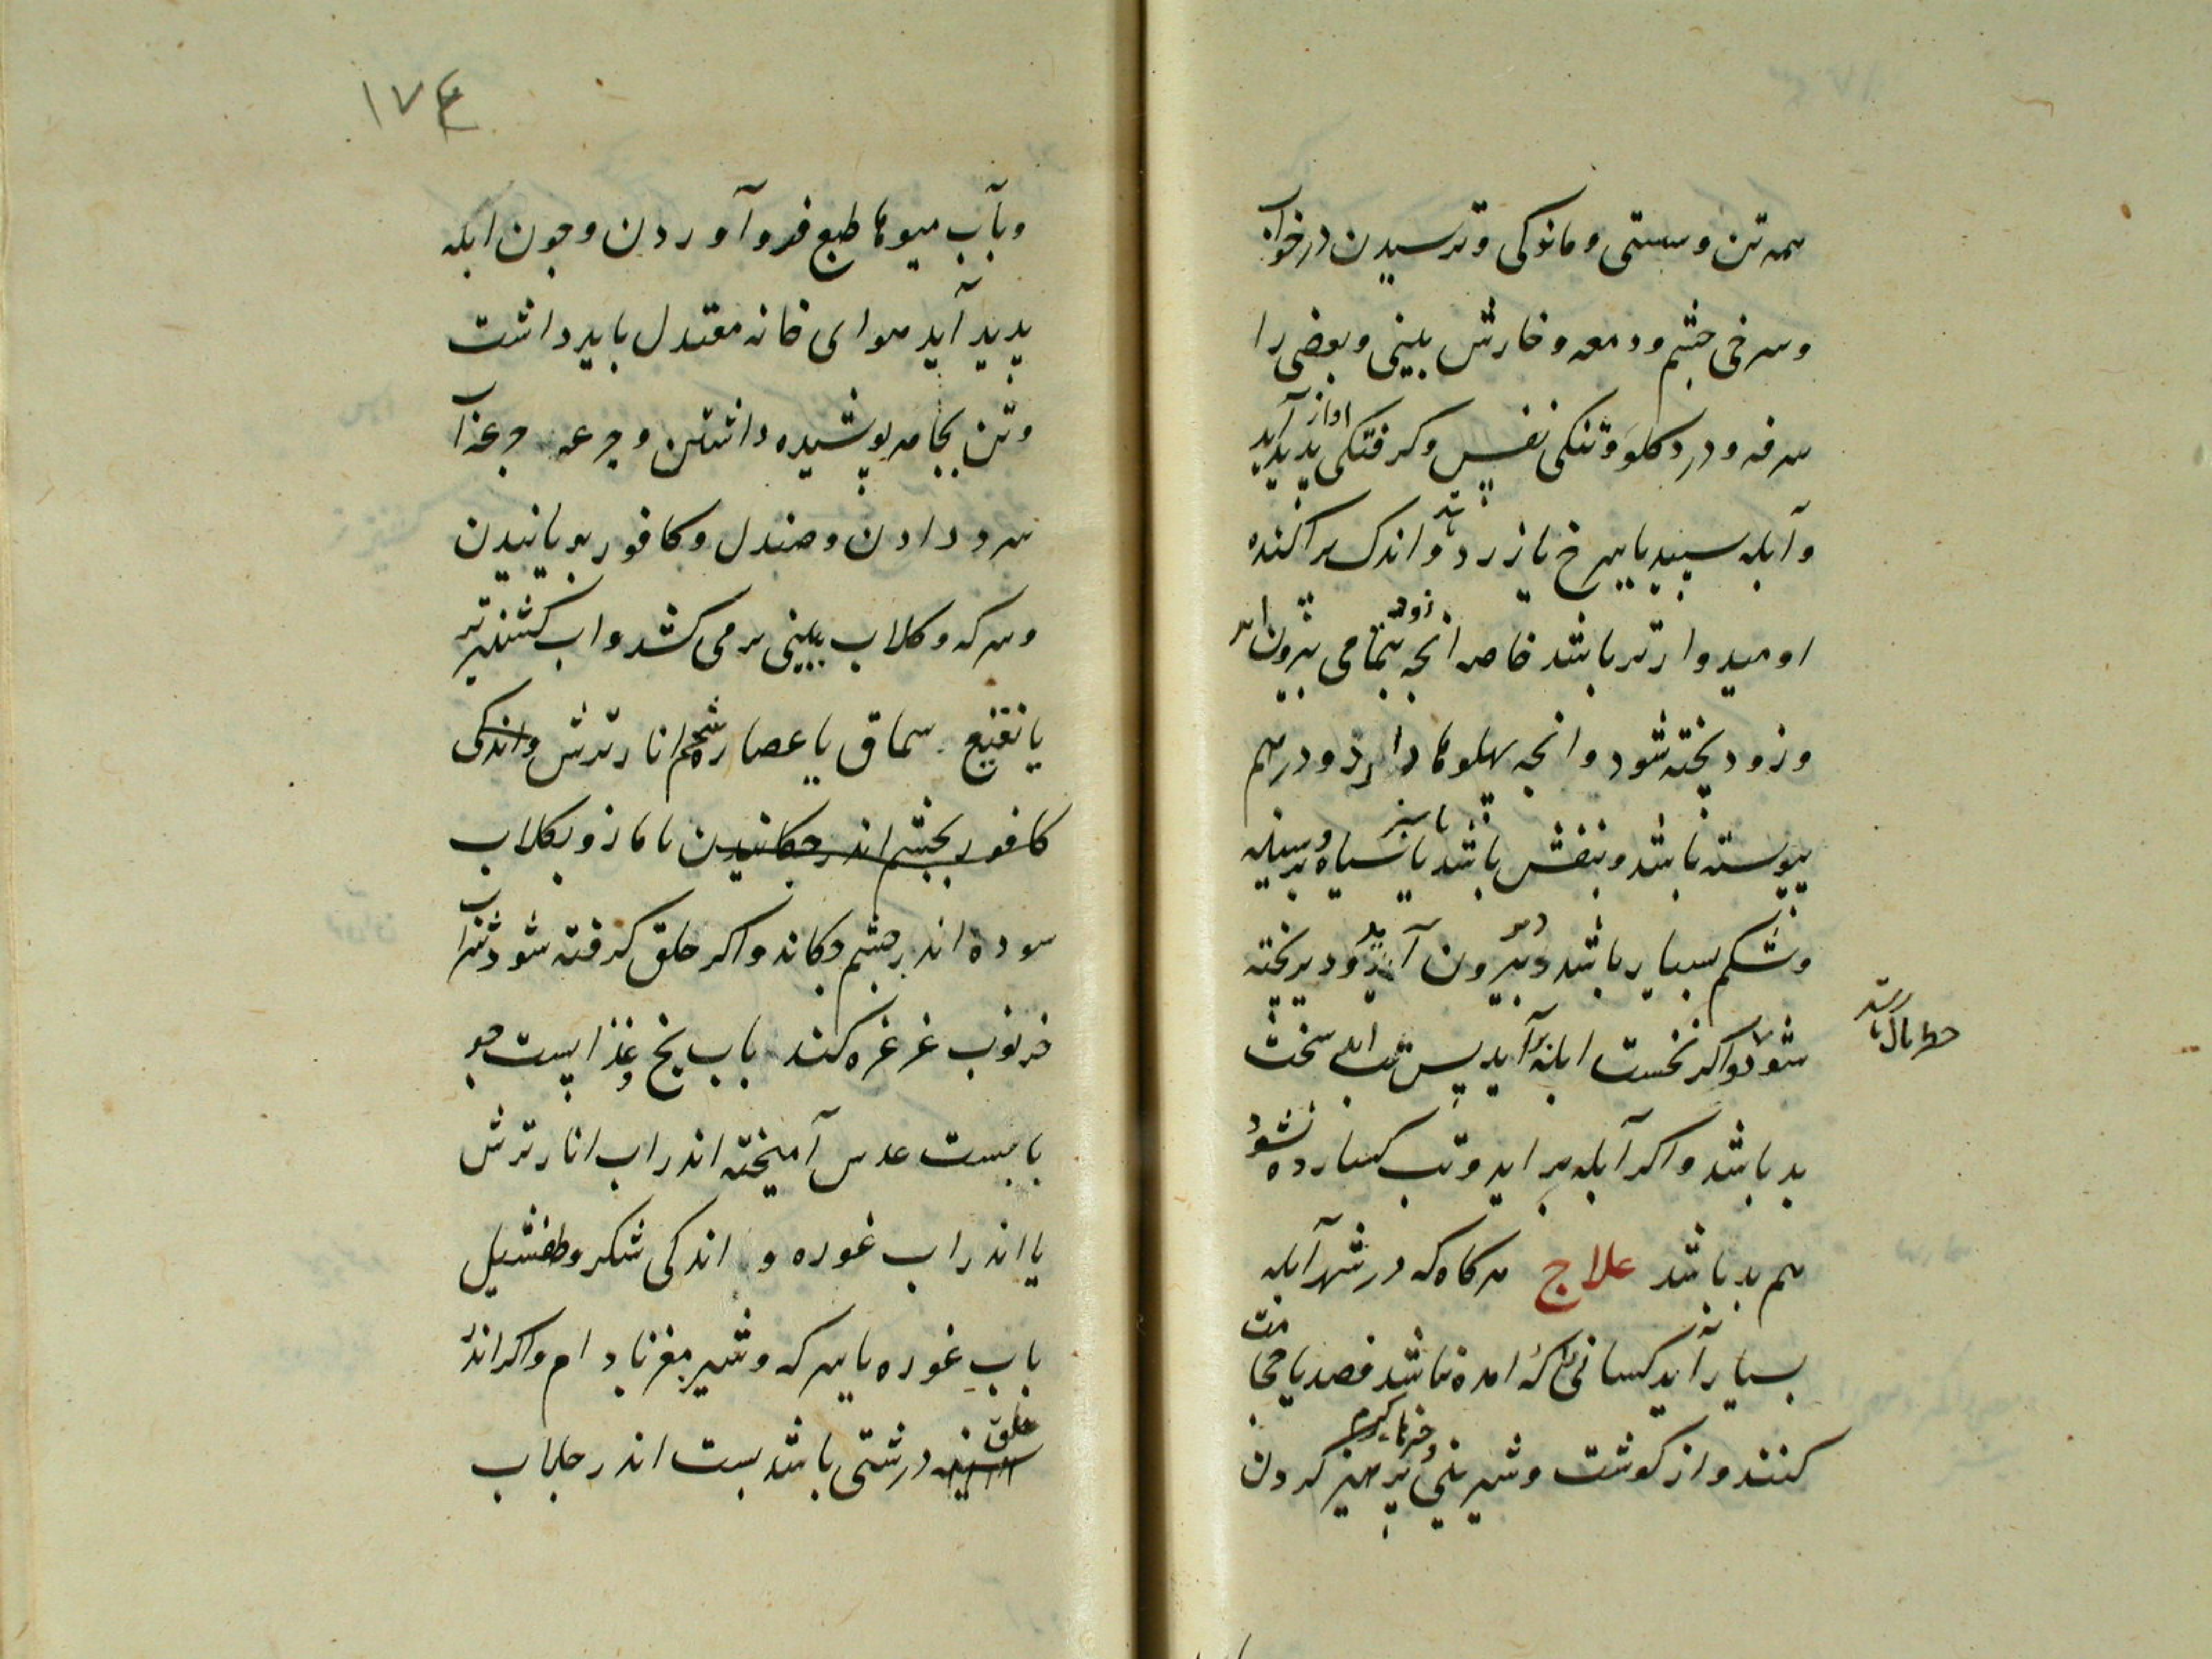 همه تن و سستی و مانوکی و ترسیدن در خواب
و سرخی چشم و دمعه و خارش بینی و بعضی را
سرفه و درد کلو و تنکی نفس و کرفتکی اواز پدید آید
و آبله سپید یا سرخ یا زرد و اندک پراکنده
اومیدوارتر باشد خاصه انچه بتمامی زود بیرون اید
و زود پخته شود و انچه پهلوها دارد و درهم
پیوسته باشد و بنفش باشد یا سبز یا سیاه و بر سینه
و شکم بسیار باشد و دیر بیرون آید و دیر پخته
شود و اکر نخست ابله برآید پس تب اید سخت
بد باشد و اکر آبله بر اید و تب کسارده نشود
هم بد باشد علاج هرکاه که در شهر آبله
بسیار آید کسانی را که امده نباشد فصد یا حجامت
کنند و از کوشت و شیرینی و خرما پرهیز کردن
۱۷۴
و بآب میوها طبع فرو آوردن و چون ابله
پدید آید هوای خانه معتدل باید داشت
و تن بجامه پوشیده داشتن و جرعه جرعه آب
سرد دادن و صندل و کافور بویانیدن
و سرکه و کلاب ببینی برمی کشد و اب کشنیز تر
یا نقیع سماق یا عصاره شحم انار ترش و اندکی
کافور بچشم اندر چکانیدن یا مازو بکلاب
سوده اندر چشم چکاند و اکر حلق کرفته شود شراب
خرنوب غرغره کند باب یخ و غذا پست جو
با پست عدس آمیخته اندر اب انار ترش
یا اندر اب غوره و اندکی شکر و طفشیل
باب غوره یا سرکه و شیر مغز بادام و اکر اندر
حلق درشتی باشد پست اندر جلاب